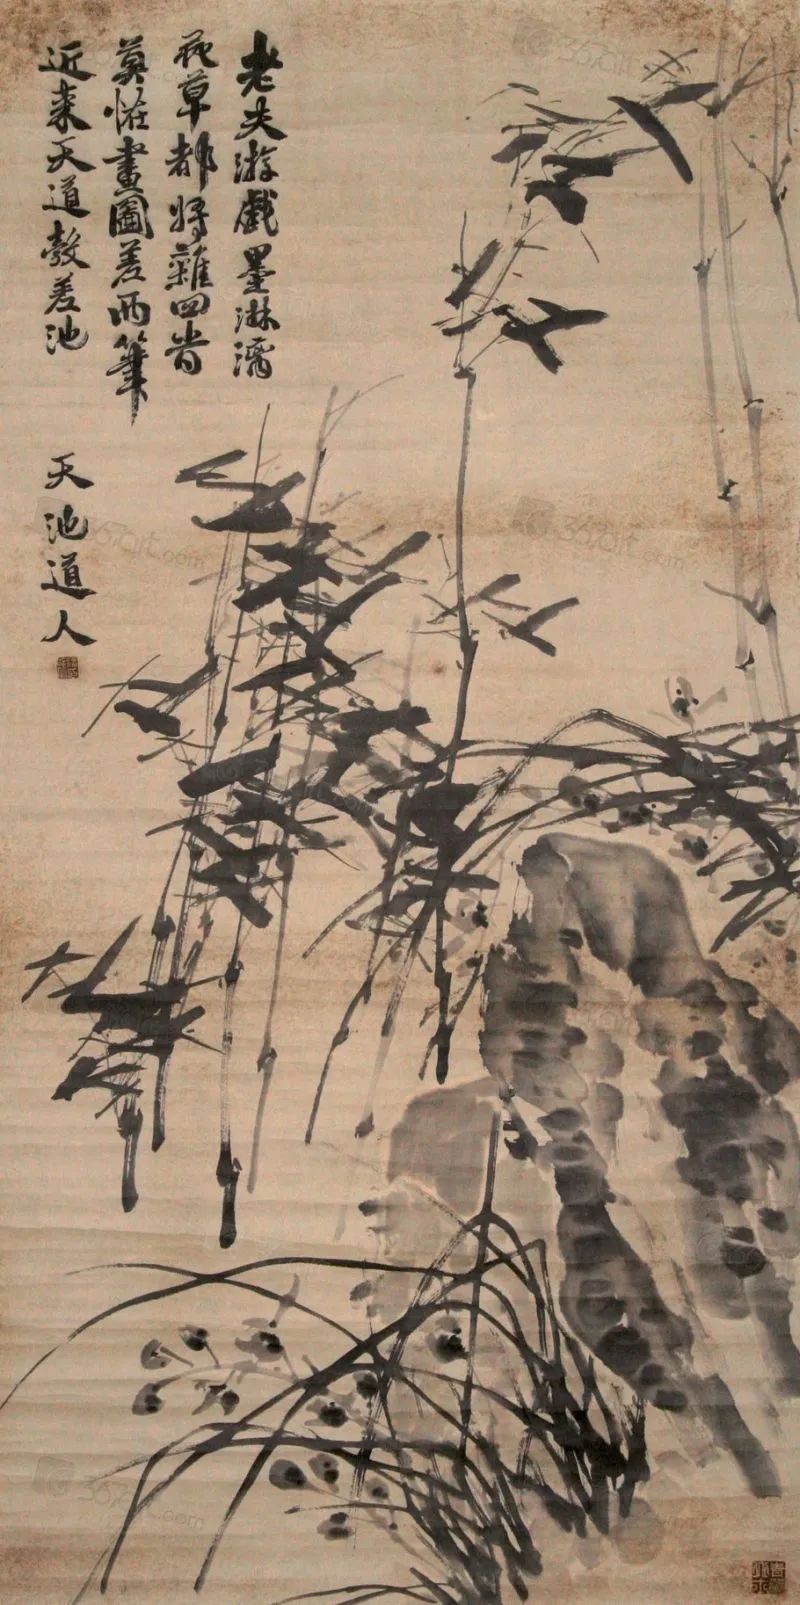 老夫游戲墨淋漓
花草都將雜四時
莫怪畫圖差兩筆
近來天道彀差池
天池道人